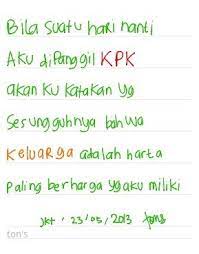 Bila suatu hari nanti
Aku dipanggil KPK
akan ku katakan yg
Sesungguhnya bahwa
Keluarga adalah harta
paling berharga yg aku miliki
Jkt, 23/05, 2013
ton's